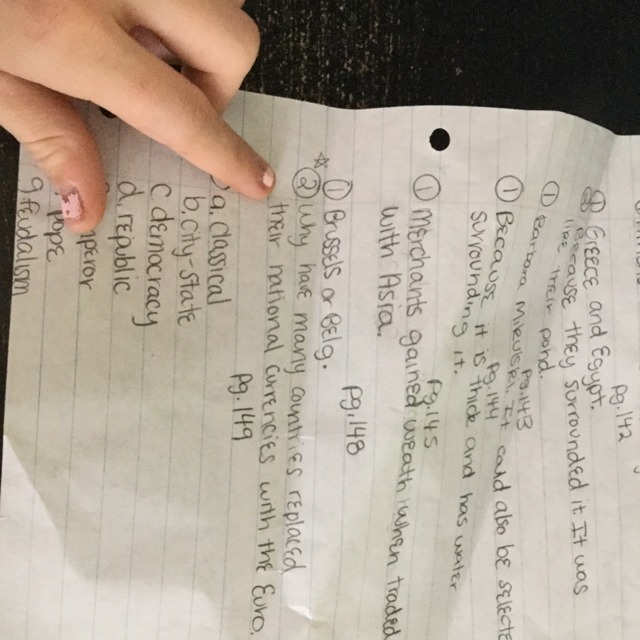 Pg.142
② Greece and Egypt.
because they surrounded it. It was
like their pond.
Pg.143
① Barbara Mikulski. It could also be selected
Pg.144
① Because it is thick and has water
surrounding it.
Pg.145
① Merchants gained wealth when traded
with Asia
Pg.148
① Brussels or Belg.
☆② Why hae many countries replaced
their national currencies with the Euro.
Pg.149
a. classical
b. city-state
c. democracy
d. republic
peror
pope
g. feudalism